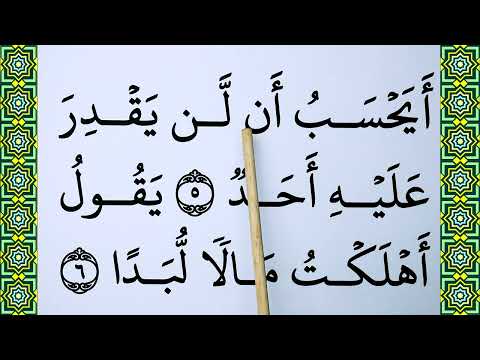 أَيَحۡسَبُ أَن لَّـن يَقۡـدِرَ
عَلَيۡـهِ أَحَـدٞ ۝٥ يَقُـولُ
أَهۡلَكۡـتُ مَـالٗا لُّبَـدًا ۝٦